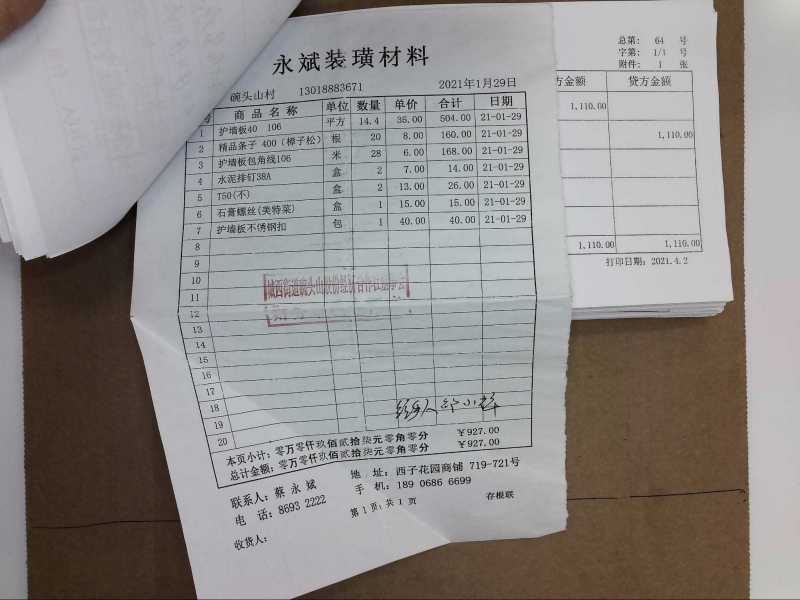 永斌装璜材料
碗头山村 13018883671 2021年1月29日
号 商品名称 单位 数量 单价 合计 日期
1 护墙板40 106 平方 14.4 35.00 504.00 21-01-29
2 精品条子 400(樟子松) 根 20 8.00 160.00 21-01-29
3 护墙板包角线106 米 28 6.00 168.00 21-01-29
4 水泥排钉38A 盒 2 7.00 14.00 21-01-29
5 T50(不) 盒 2 13.00 26.00 21-01-29
6 石膏螺丝(美特菜) 盒 1 15.00 15.00 21-01-29
7 护墙板不锈钢扣 包 1 40.00 40.00 21-01-29
8
9
10
11
12
13
14
15
16
17
18
19
20
经手人
本页小计: 零万零仟玖佰贰拾柒元零角零分 ¥927.00
总计金额: 零万零仟玖佰贰拾柒元零角零分 ¥927.00
联系人: 蔡永斌 地 址: 西子花园商铺 719-721号
电 话: 8693 2222 手 机: 189 0686 6699
收货人: 第1页,共1页 存根联
总第: 64 号
字第: 1/1 号
附件: 1 张
方金额 贷方金额
1,110.00
1,110.00
1,110.00 1,110.00
打印日期: 2021.4.2